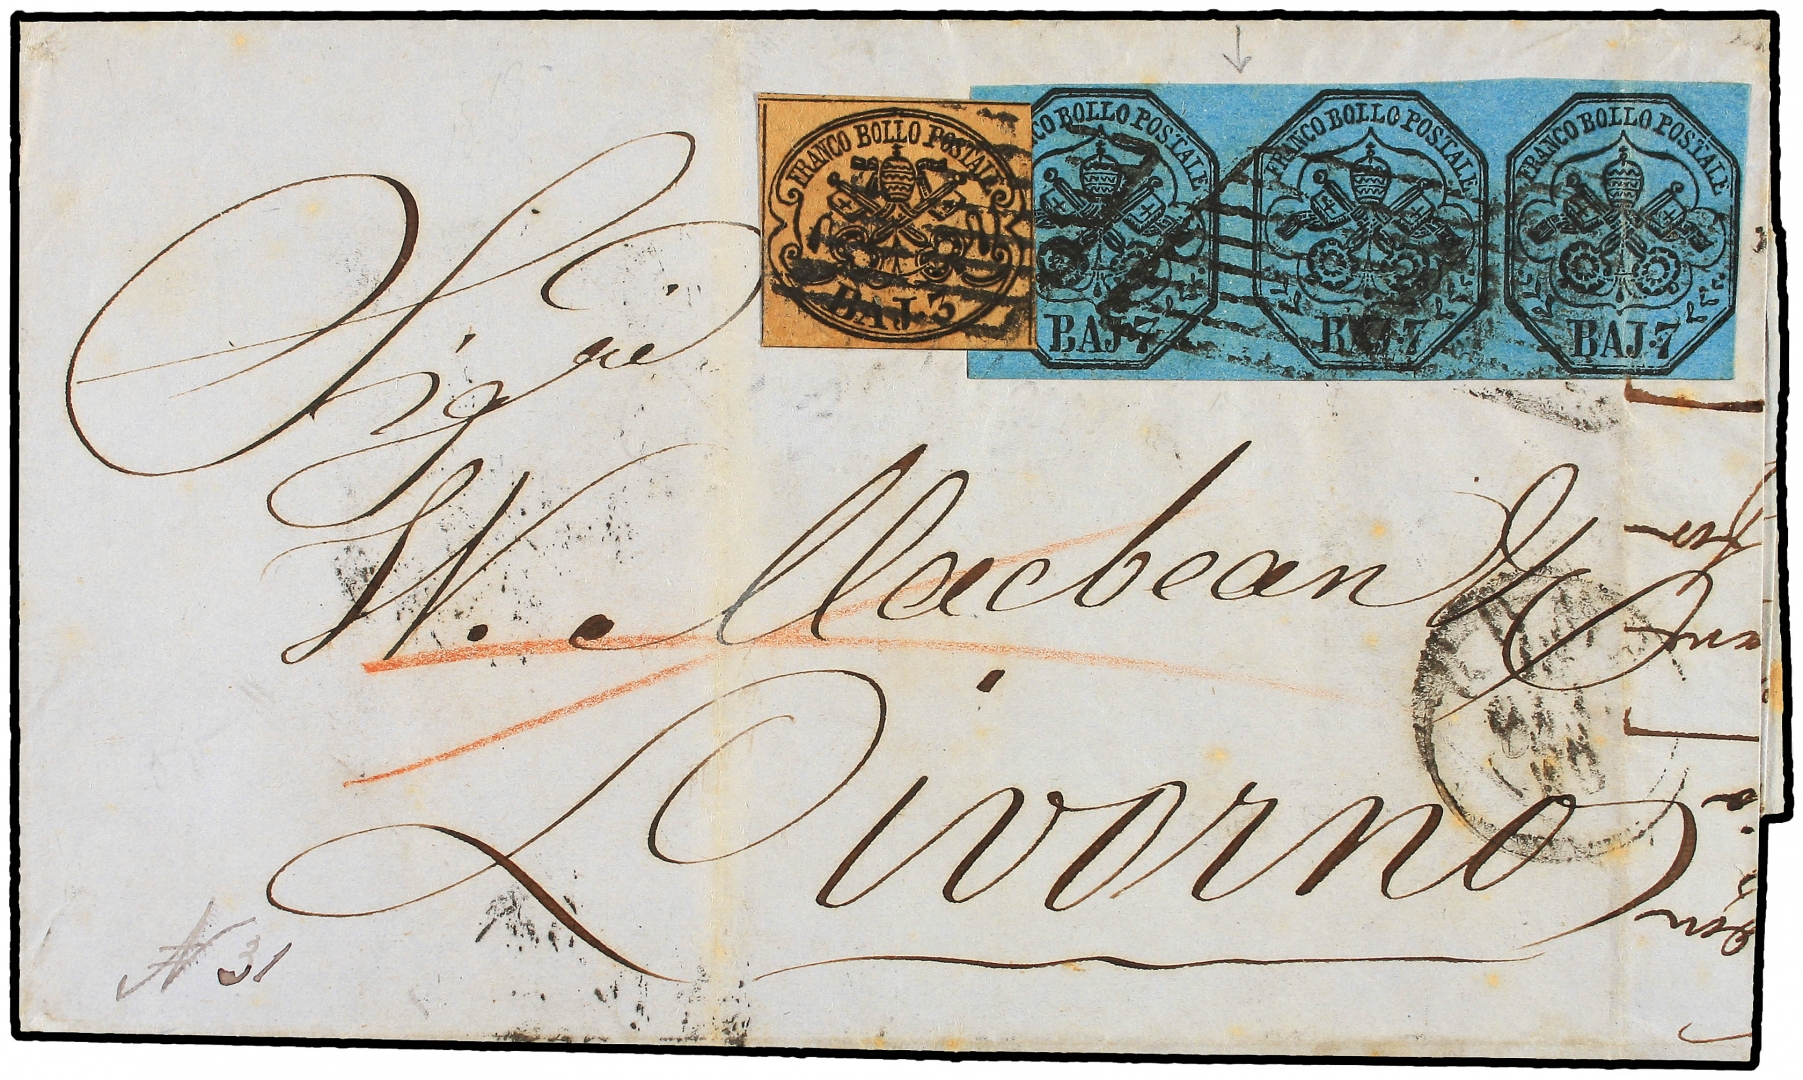 FRANCO BOLLO POSTALE
BAJ. 3
FRANCO BOLLO POSTALE
BAJ. 7
FRANCO BOLLO POSTALE
BAJ. 7
FRANCO BOLLO POSTALE
BAJ. 7
Sigri
W. Macbean & Co
Livorno
N 31